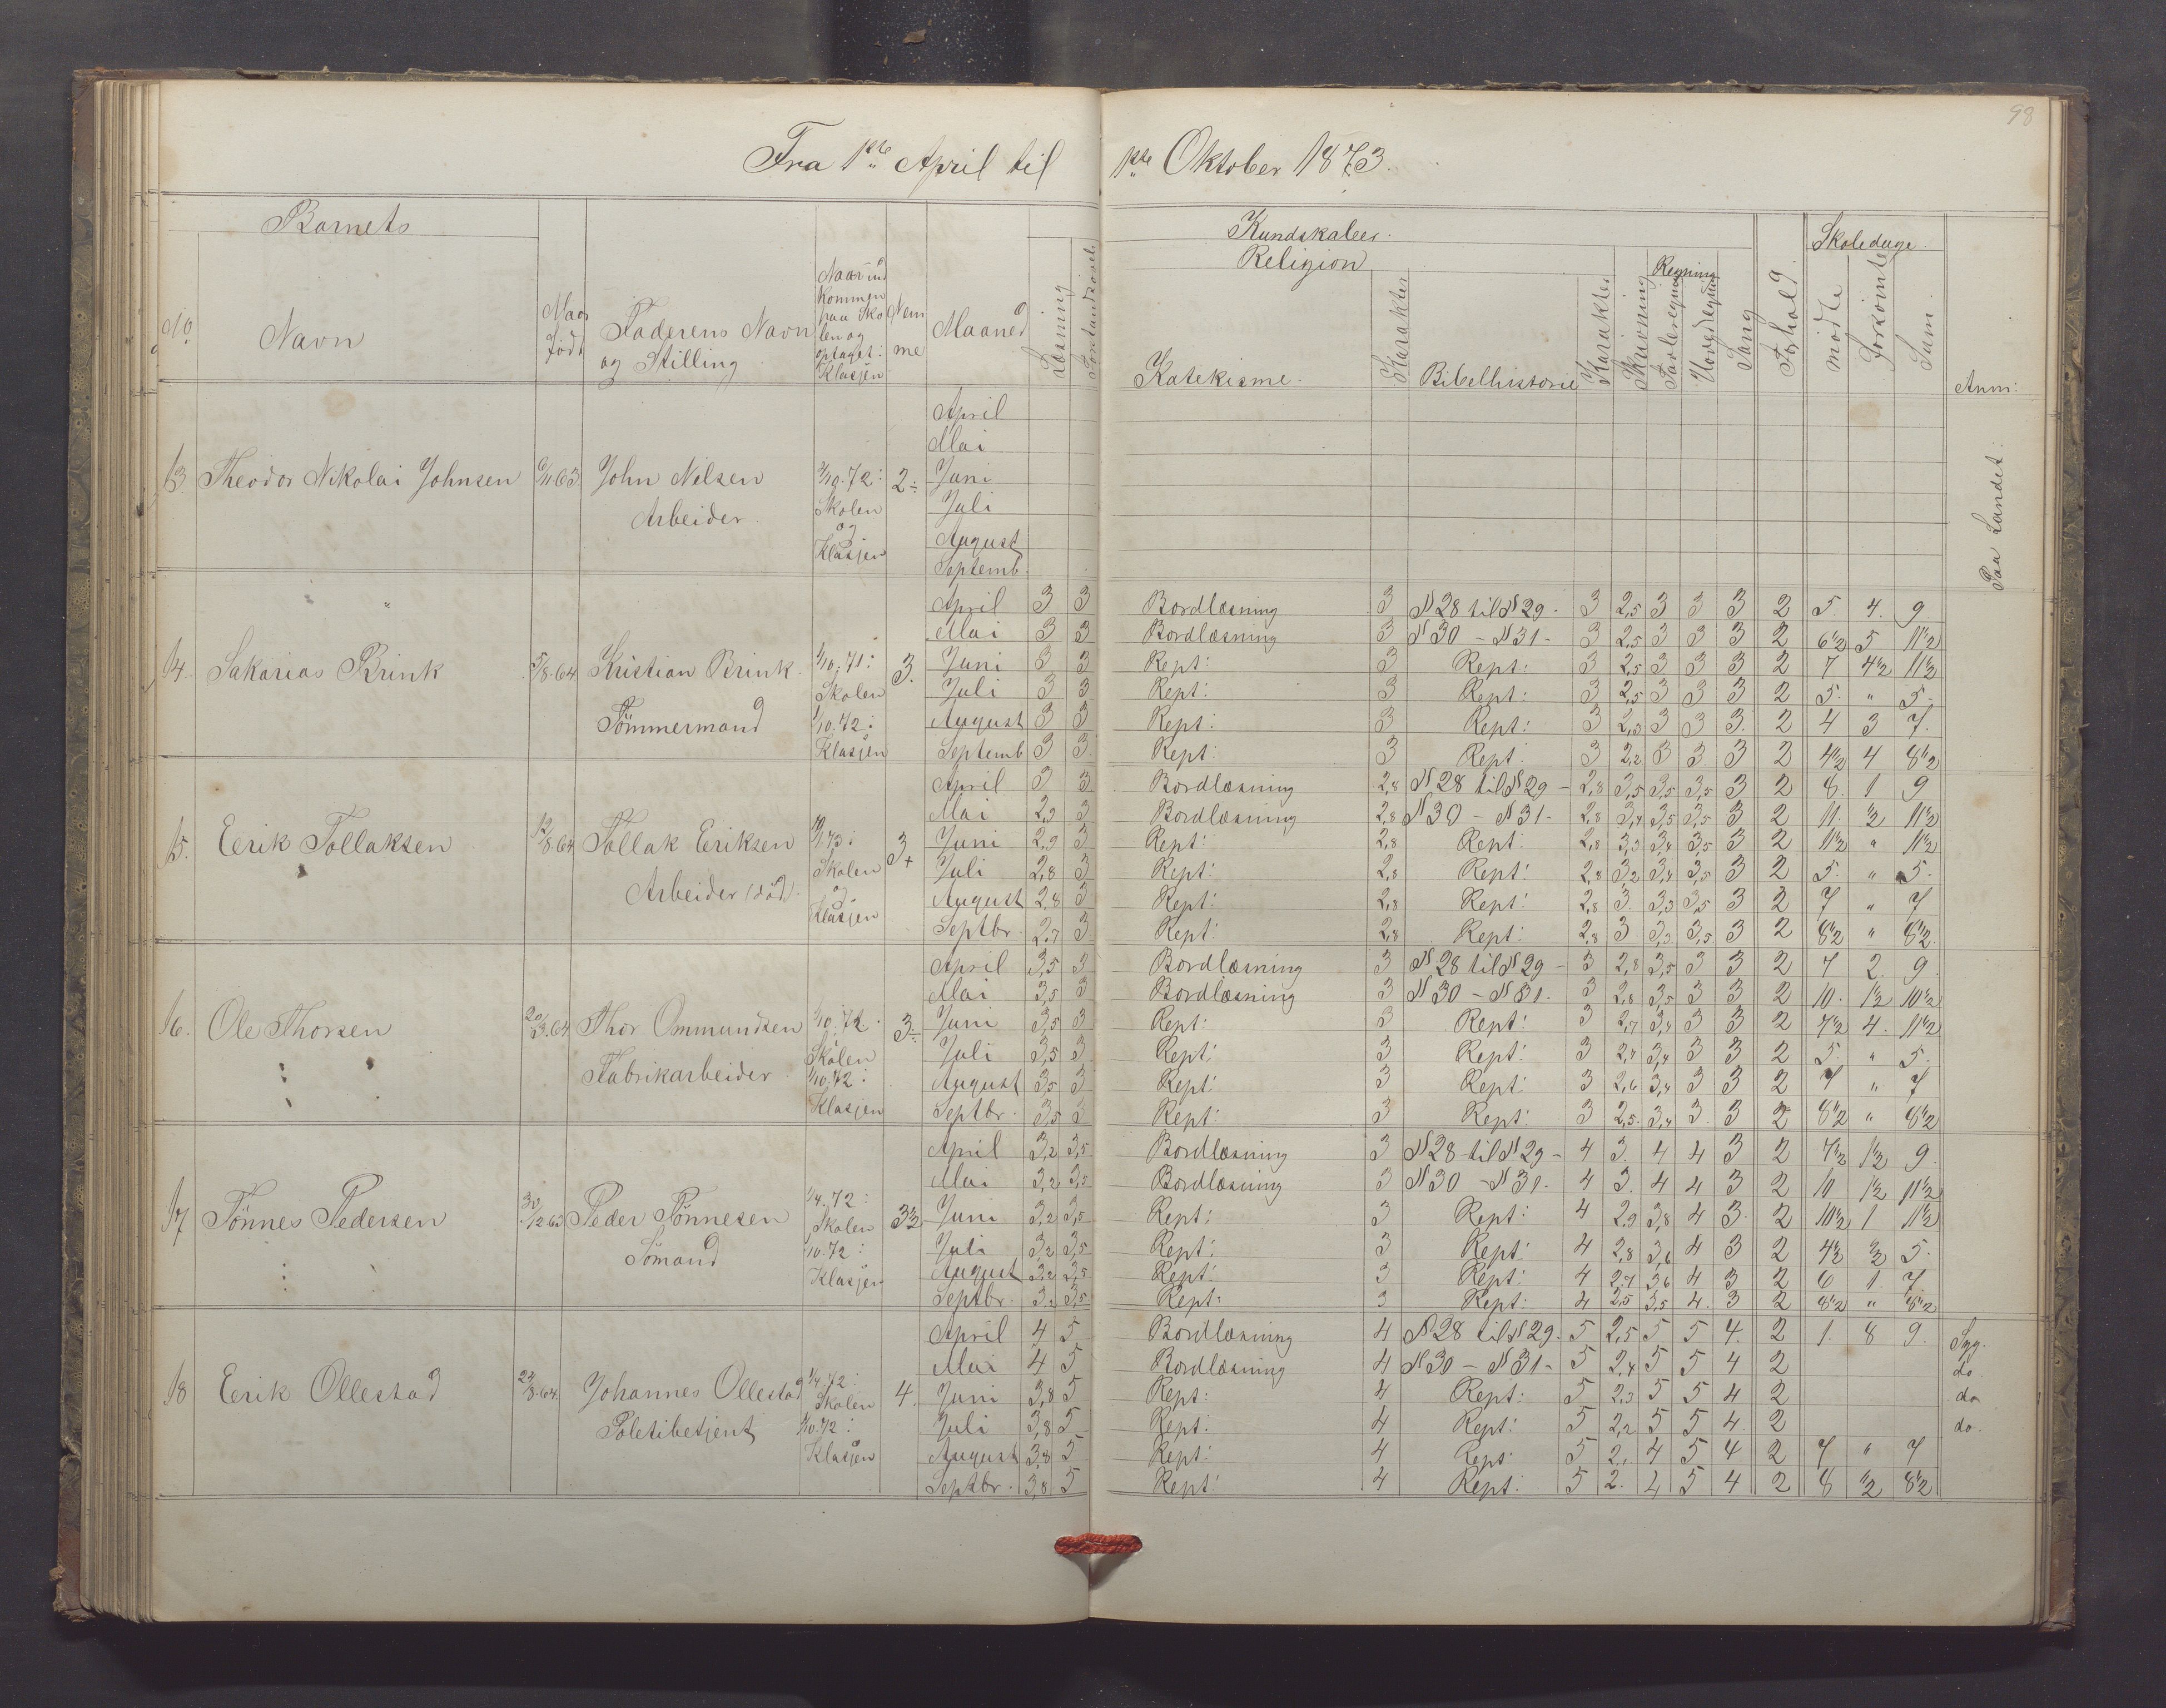 98
Fra 1ste April til 1ste Oktober 1873.
Barnets
Kundskaber.
Skoledage.
Religion
Regning
No
Navn
Naar født
Faderens Navn og Stilling
Naar ind kommen paa Sko len og optaget i Klassen
Nem me
Maaned
Læsning
Forstandsøvels
Katekisme.
Karakter
Bibelhistorie
Karakter
Skrivning
Tavleregning
Hovedregning
Sang
Forhold.
mødte
forsømte
Sum.
Anm:
13. Theodor Nikolai Johnsen 6/11.63. John Nilsen Arbeider. 1/10.72: Skolen og Klassen 2÷
April
Mai
Juni
Juli
August
Septemb.
Paa Landet.
14. Sakarias Brink 5/8.64 Kristian Brink. Tømmermand 1/10.71: Skolen 1/10.72: Klassen 3.
April 3 3 Bordlæsning 3 N 28 til N 29. 3 2,5 3 3 3 2 5. 4. 9
Mai 3 3 Bordlæsning 3 N 30 – N 31 - 3 2,5 3 3 3 2 6½ 5 11½
Juni 3 3 Rept: 3 Rept: 3 2,5 3 3 3 2 7 4½ 11½
Juli 3 3 Rept: 3 Rept: 3 2,5 3 3 3 2 5. " 5.
August 3 3 Rept: 3 Rept: 3 2,3 3 3 3. 2 4 3 7.
Septemb 3 3 Rept: 3 Rept: 3 2,2 3 3 3 2 4½ 4 8½
15. Eerik Tollaksen 12/8.64 Tollak Eriksen Arbeider (død). Skolen og Klassen 3+
April 3 3 Bordlæsning 2,8 N 28 til N 29 - 2,8 3,5 3,5 3,5 3 2 8. 1 9
Mai 2,9 3 Bordlæsning 2,8 N 30 – N 31 - 2,8 3,4 3,5 3,5 3 2 11. ½ 11½
Juni 2,9 3 Rept: 2,8 Rept: 2,8 3,3 3,4 3,5 3 2 11½ " 11½
Juli 2,8 3 Rept: 2,8 Rept: 2,8 3,2 3,4 3,5 3 2 5. " 5.
August 2,8 3 Rept: 2,8 Rept: 2,8 3. 3,3 3,5 3 2 7 " 7
Septbr. 2,7 3 Rept: 2,8 Rept: 2,8 3 3,3 3,5 3 2 8½ " 8½
16. Ole Thorsen Thor Ommundsen Fabrikarbeider. 1/10.72 Skolen 1/10.72: Klassen 3÷
April 3,5 3 Bordlæsning 3 N 28 til N 29 - 3 2,8 3,5 3 3 2 7 2. 9.
Mai 3,5 3 Bordlæsning 3 N 30 – N 31. 3 2,8 3,5 3 3 2 10. 1½ 10½
Juni 3,5 3 Rept: 3 Rept: 3 2,7 3,4 3 3 2 7½ 4. 11½
Juli 3,5 3 Rept: 3 Rept: 3 2,7 3,4 3 3 2 5. " 5.
August 3,5 3 Rept: 3 Rept: 3 2,6 3,4 3 3 2 7 " 7
Septbr. 3,5 3 Rept: 3 Rept: 3 2,5. 3,4 3. 3 2 8½ " 8½
17 Tønnes Pedersen 30/12.63 Peder Tønnesen Sømand 1/4.72: Skolen 1/10.72: Klassen 3½
April 3,2 3,5 Bordlæsning 3 N 28 til N 29 - 4 3. 4 4 3 2 7½ 1½ 9.
Mai 3,2 3,5 Bordlæsning 3 N 30 – N 31. 4 3. 4 4 3 2 10 1½ 11½
Juni 3,2 3,5 Rept: 3 Rept: 4 2,9 3,8 4 3. 2 10½ 1 11½
Juli 3,2 3,5 Rept: 3 Rept: 4 2,8 3,6 4 3 2 4½ ½ 5.
August 3,2 3,5 Rept: 3 Rept: 4 2,7 3,6 4 3 2 6 1. 7
Septbr. 3,2 3,5 Rept: 3 Rept: 4 2,5 3,5 4. 3 2 8½ " 8½
18 Eerik Ollestad 22/8.64. Johannes Ollestad Poletibetjent 1/4.72: Skolen 1/10.72: Klassen 4.
April 4 5 Bordlæsning 4 N 28 til N 29. 5 2,5 5 5 4. 2 1. 8 9. Syg.
Mai 4 5 Bordlæsning 4 N 30 – N 31 - 5 2,4 5 5 4 2 do
Juni 3,8 5 Rept: 4 Rept: 5 2,3 5 5 4 2 do
Juli 3,8 5 Rept: 4 Rept: 5 2,2 5 5 4. 2 do.
August 3,8 5 Rept: 4 Rept: 5 2,1 4 5 4 2 7 " 7
Septbr. 3,8 5 Rept: 4 Rept: 5 2. 4 5 4 2 8 ½ 8½